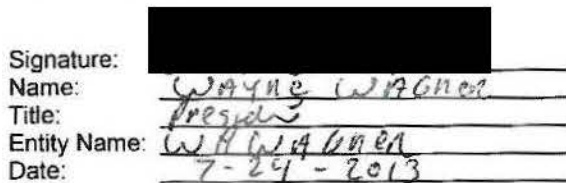 Signature:
Name: WAYNE WAGNER
Title: President
Entity Name: WH WAGNER
Date: 7-24-2013